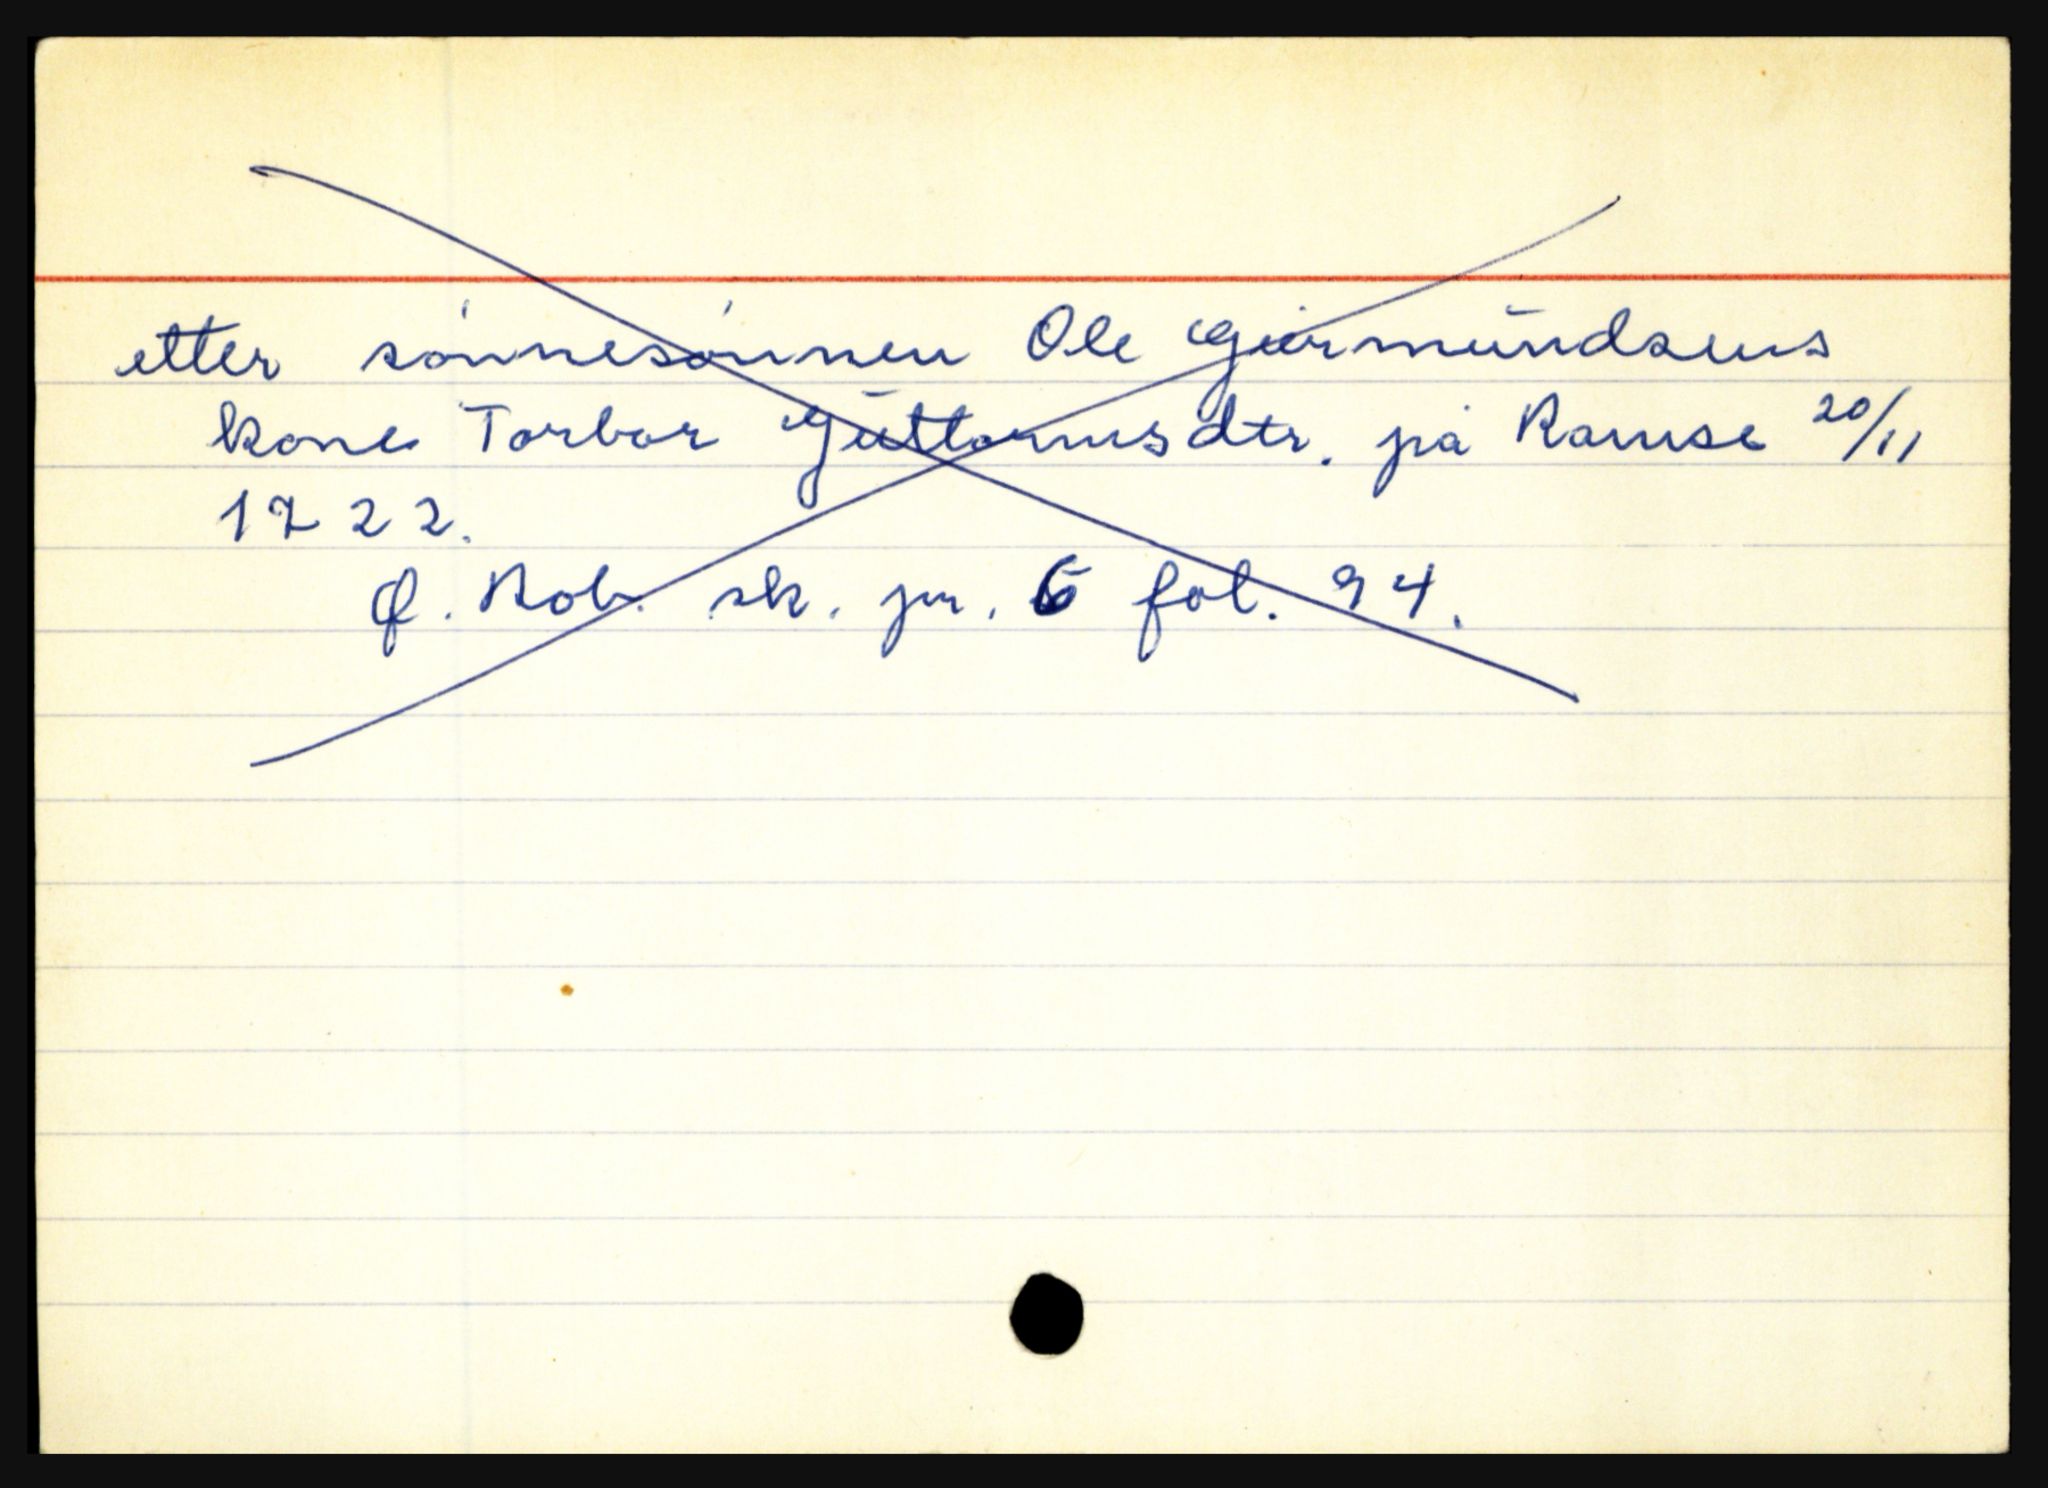 etter sónnesónnen Ole Giermūndsens
kone Torbor Gūttormsdtr. på Ramse 20/11
1722.
Ø. Rob. sk. pr. 6 fol. 94.